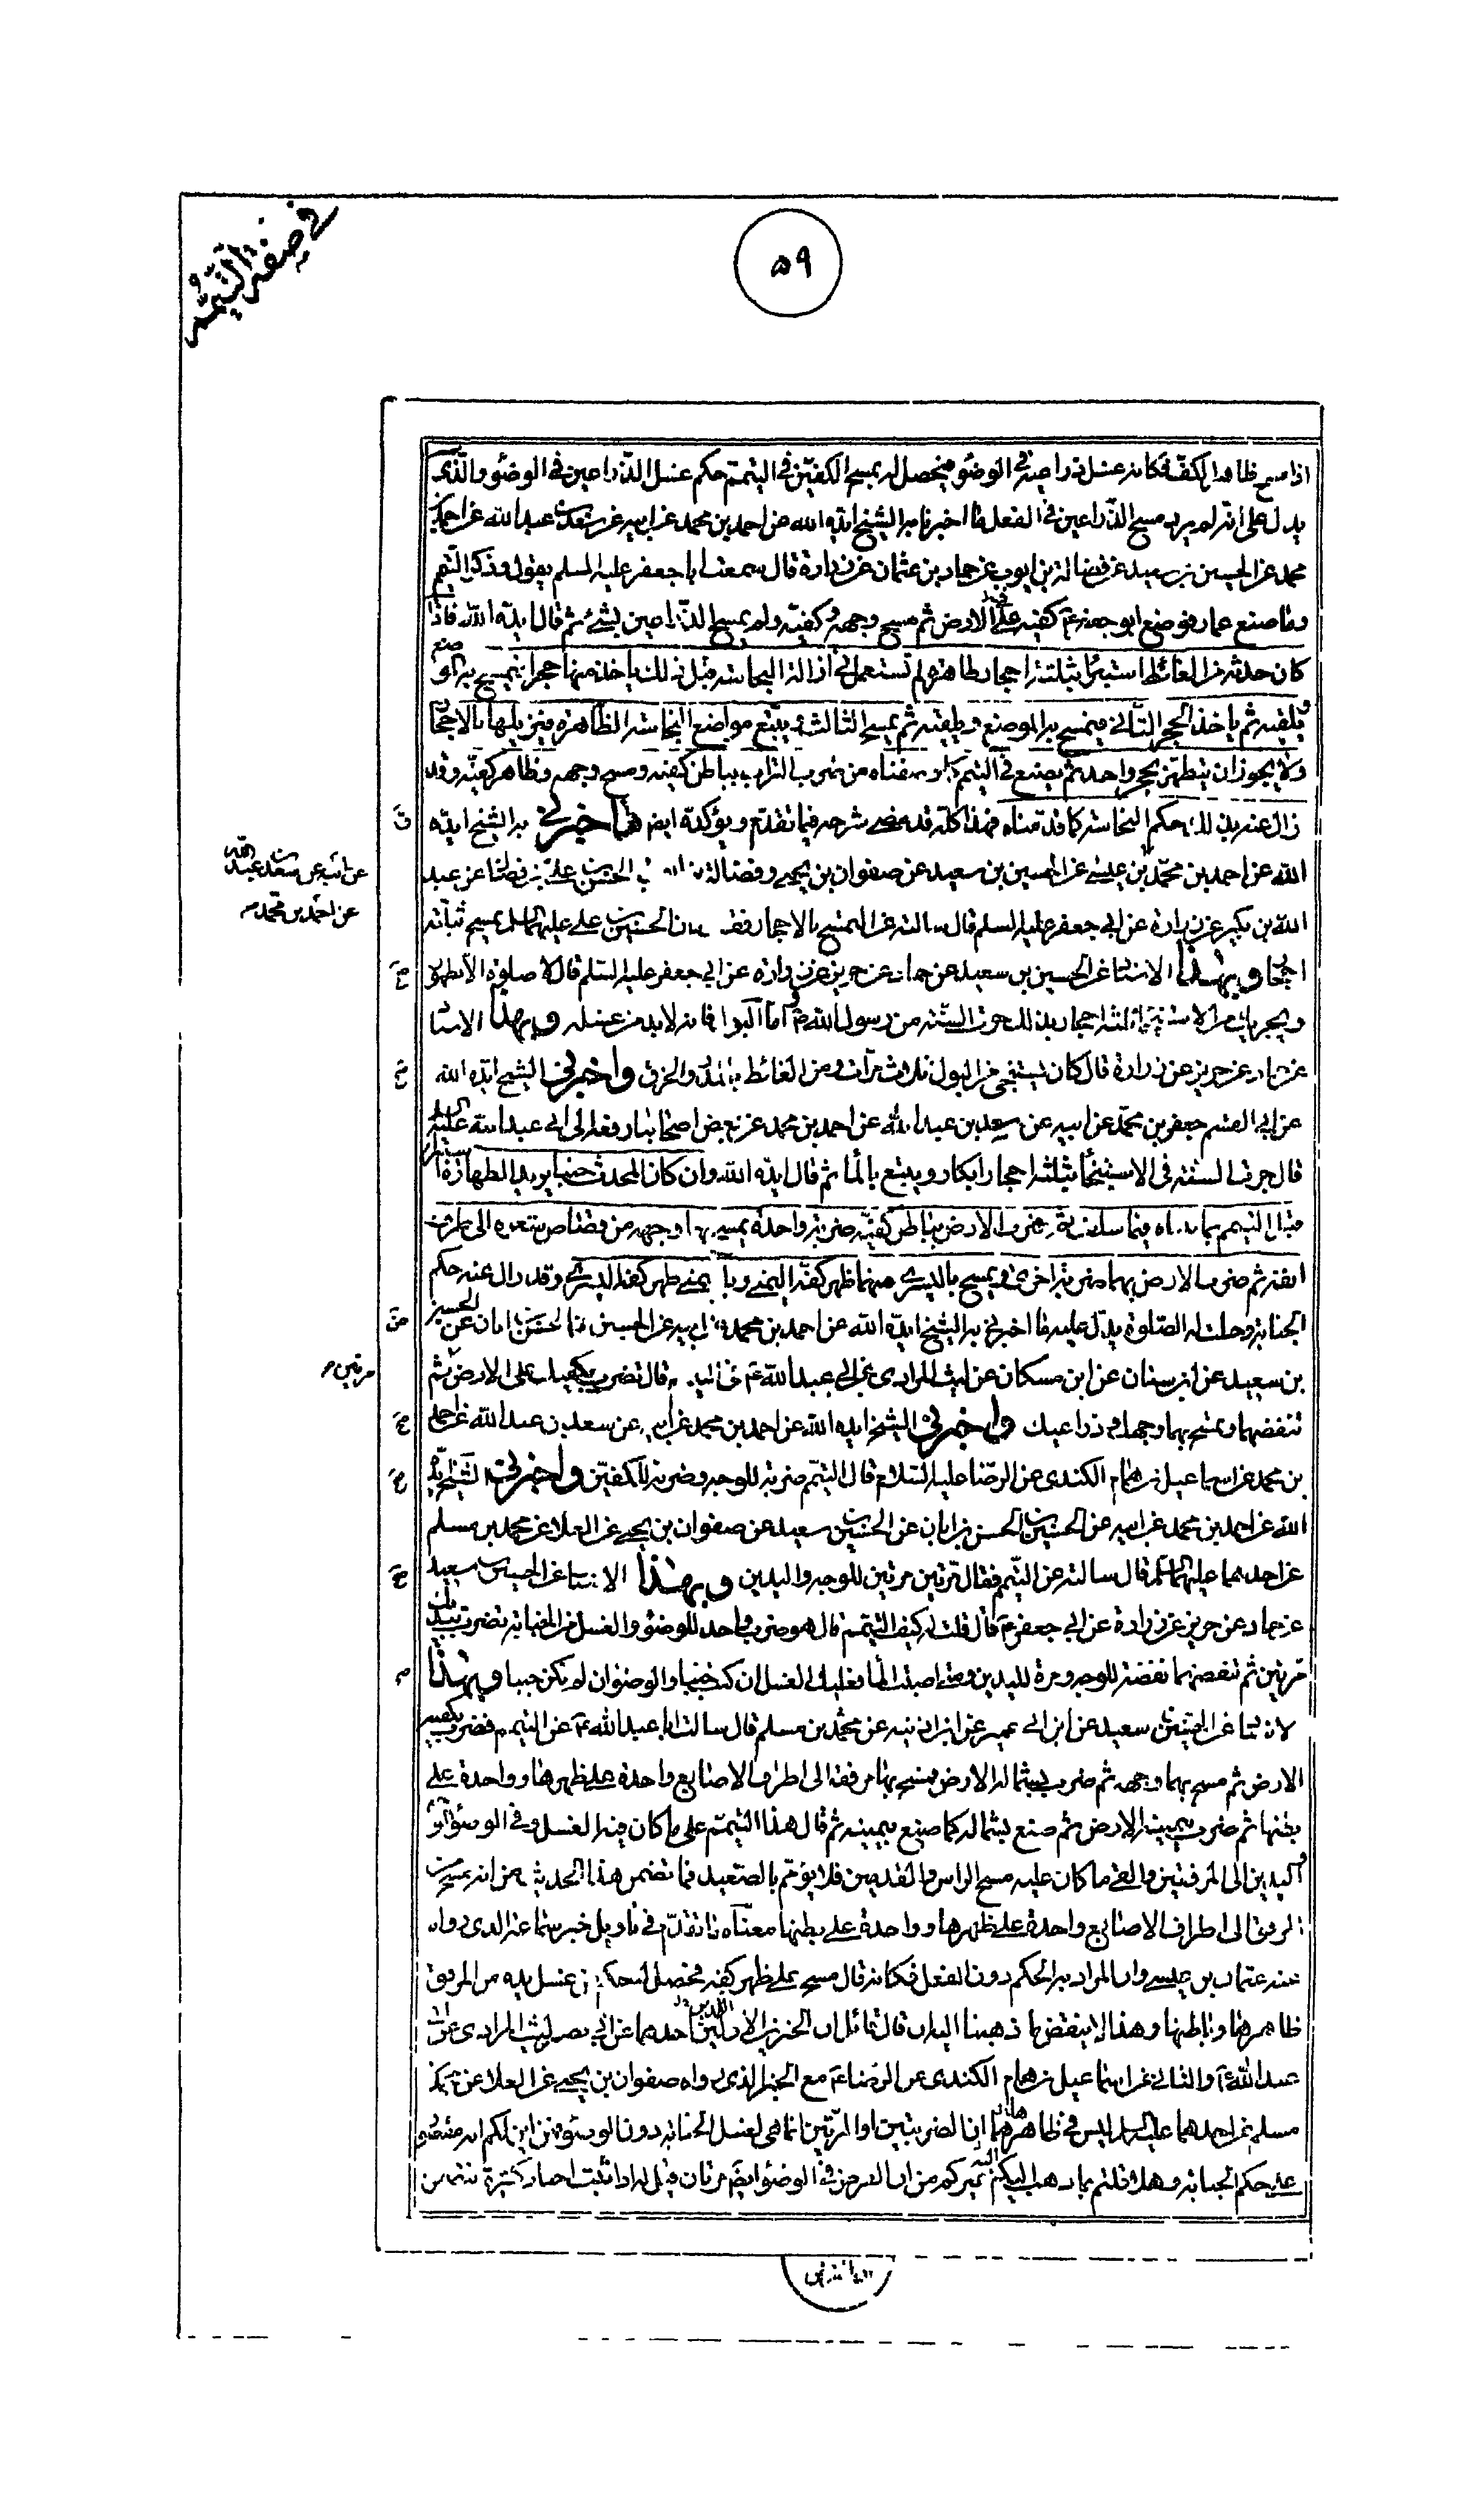 في صفة التيمم
٥٩
اذا مسح ظاهر الكف فكانه غسل ذراعيه في الوضوء فيحصل له بمسح الكفين في التيمم حكم غسل الذراعين في الوضوء والذى
يدل على انه لم يرد مسح الذراعين في الفعل ما اخبرنا به الشيخ ايده الله عن احمد بن محمد عن ابيه عن سعد بن عبد الله عن احمد بن
محمد عن الحسين بن سعيد عن فضالة بن ايوب عن حماد بن عثمان عن زرارة قال سمعت ابا جعفر عليه السلم يقول وذكر التيمم
وما صنع عمار فوضع ابو جعفر ع كفيه على الارض ثم مسح وجهه وكفيه ولم يمسح الذراعين بشئ ثم قال ايده الله فاذا
كان حدثه من الغائط استبرئ بثلثة احجار طاهرة لم تستعمل في ازالة النجاسة قبل ذلك ياخذ منها حجرا فيمسح به الموضع
ويلقيه ثم ياخذ الحجر الثاني فيمسح به الموضع ويلقيه ثم يمسح بالثالث ويتبع مواضع النجاسة الظاهرة فيزيلها بالاحجار
ولا يجوز ان يتطهر بحجر واحد ثم يصنع في التيمم كما وصفناه من ضرب التراب بباطن كفيه ومسح وجهه وظاهر كفيه وقد
زال عنه بذلك حكم النجاسة كما قدمناه فهذا كله قد مضى شرحه فيما تقدم ويؤكده ايض ما اخبرني به الشيخ ايده
الله عن احمد بن محمد بن عيسى عن الحسين بن سعيد عن صفوان بن يحيى وفضالة الحسن بن علي بن فضال عن عبد
عن ابيه عن سعد بن عبد الله
عن احمد بن محمد
الله بن بكير عن زرارة عن ابي جعفر عليه السلم قال سالته عن التمسح بالاحجار فقال كان الحسين بن علي عليهما السلم يمسح بثلثة
احجار وبهذا الاسناد عن الحسين بن سعيد عن حماد عن حريز عن زرارة عن ابي جعفر عليه السلم قال لا صلوة الا بطهور
ويجزيك من الاستنجاء ثلثة احجار بذلك جرت السنة من رسول الله ص واما البول فانه لا بد من غسله وبهذا الاسناد
عن حماد عن حريز عن زرارة قال كان يستنجي من البول ثلاث مرات ومن الغائط بالمدر والخرق واخبرني الشيخ ايده الله
عن ابي القسم جعفر بن محمد عن ابيه عن سعد بن عبد الله عن احمد بن محمد عن بعض اصحابنا رفعه الى ابي عبد الله عليه السلم
قال جرت السنة في الاستنجاء بثلثة احجار ابكار ويتبع بالماء ثم قال ايده الله وان كان المحدث جنبا يريد الطهارة
ضرب الارض بباطن كفيه ضربة واحدة يمسح بهما وجهه من قصاص شعره الى طرف
انفه ثم ضرب الارض بهما ضربة اخرى ويمسح باليسرى منهما ظهر كفه اليمنى وباليمنى ظهر كفه اليسرى وقد زال عنه حكم
الجنابة وحلت له الصلوة يدل عليه ما اخبرني به الشيخ ايده الله عن احمد بن محمد عن ابيه عن الحسين بن الحسن بن ابان عن الحسين
بن سعيد عن ابن سنان عن ابن مسكان عن ليث المرادي عن ابي عبد الله ع في التيمم قال تضرب بكفيك على الارض ثم
مرتين
تنفضهما وتمسح بهما وجهك وذراعيك واخبرني الشيخ ايده الله عن احمد بن محمد عن ابيه عن سعد بن عبد الله عن احمد
بن محمد عن اسماعيل بن همام الكندي عن الرضا عليه السلام قال التيمم ضربة للوجه وضربة للكفين واخبرني الشيخ ايده
الله عن احمد بن محمد عن ابيه عن الحسين بن الحسن بن ابان عن الحسين بن سعيد عن صفوان بن يحيى عن العلا عن محمد بن مسلم
عن احدهما عليهما السلم قال سالته عن التيمم فقال مرتين مرتين للوجه واليدين وبهذا الاسناد عن الحسين بن سعيد
عن حماد عن حريز عن زرارة عن ابي جعفر ع قال قلت له كيف التيمم قال هو ضرب واحد للوضوء والغسل من الجنابة تضرب بيديك
مرتين ثم تنفضهما نفضة للوجه ومرة لليدين ومتى اصبت الماء فعليك الغسل ان كنت جنبا والوضوء ان لم تكن جنبا وبهذا
الاسناد عن الحسين بن سعيد عن ابن ابي عمير عن ابن اذينه عن محمد بن مسلم قال سالت ابا عبد الله ع عن التيمم فضرب بكفيه
الارض ثم مسح بهما وجهه ثم ضرب بشماله الارض فمسح بها مرفقه الى اطراف الاصابع واحدة على ظهرها وواحدة على
بطنها ثم ضرب بيمينه الارض ثم صنع بشماله كما صنع بيمينه ثم قال هذا التيمم على ما كان فيه الغسل وفي الوضوء الوجه
واليدين الى المرفقين والقى ما كان عليه مسح الراس والقدمين فلا يؤمم بالصعيد فما تضمن هذا الحديث من انه يمسح من
المرفق الى اطراف الاصابع واحدة على ظهرها وواحدة على بطنها معناه ما تقدم في تاويل خبر سماعة الذى رواه
عنه عثمان بن عيسى وان المراد به الحكم دون الفعل فكانه قال مسح على ظهر كفه فحصل له حكم من غسل يده من المرفق
ظاهرها وباطنها وهذا لا ينقض ما ذهبنا اليه فان قال قائل ان الخبرين الاولين الذين احدهما عن ابي بصير ليث المرادى عن ابي
عبد الله ع والثاني عن اسماعيل بن همام الكندى عن الرضا ع مع الخبر الذى رواه صفوان بن يحيى عن العلا عن محمد بن
مسلم عن احدهما عليهما السلم ليس في ظاهرها ان الضربتين او المرتين انما هي لغسل الجنابة دون الوضوء فمن اين لكم انه مقصور
على حكم الجنابة وهلا قلتم بما ذهب اليه غيركم من ان الفرض في الوضوء ايض مرتان قيل له اذا ثبت اخبار كثيرة تتضمن